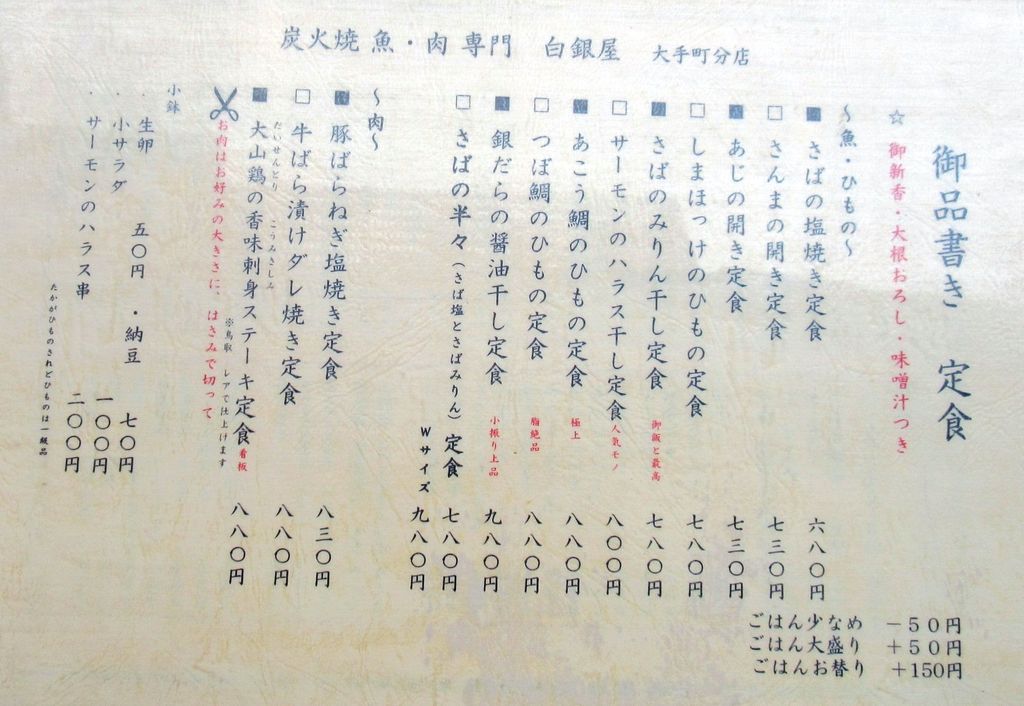 炭火焼 魚・肉 専門 白銀屋 大手町分店
御品書き 定食
☆ 御新香・大根おろし・味噌汁つき
～魚・ひもの～
■ さばの塩焼き定食 六八〇円
□ さんまの開き定食 七三〇円
■ あじの開き定食 七三〇円
□ しまほっけのひもの定食 七八〇円
■ さばのみりん干し定食 御飯と最高 七八〇円
□ サーモンのハラス干し定食 人気モノ 八〇〇円
■ あこう鯛のひもの定食 極上 八八〇円
□ つぼ鯛のひもの定食 脂絶品 八八〇円
■ 銀だらの醤油干し定食 小振り上品 九八〇円
□ さばの半々（さば塩とさばみりん）定食 七八〇円
Wサイズ 九八〇円
～肉～
■ 豚ばらねぎ塩焼き定食 八三〇円
□ 牛ばら漬けダレ焼き定食 八八〇円
だいせんとり こうみさしみ
■ 大山鶏の香味刺身ステーキ定食 看板 八八〇円
※鳥取 レアで仕上げます
お肉はお好みの大きさに、はさみで切って
小鉢
・生卵 五〇円 ・納豆 七〇円
・小サラダ 一〇〇円
・サーモンのハラス串 二〇〇円
たかがひものされどひものは一級品
ごはん少なめ －５０円
ごはん大盛り ＋５０円
ごはんお替り ＋150円